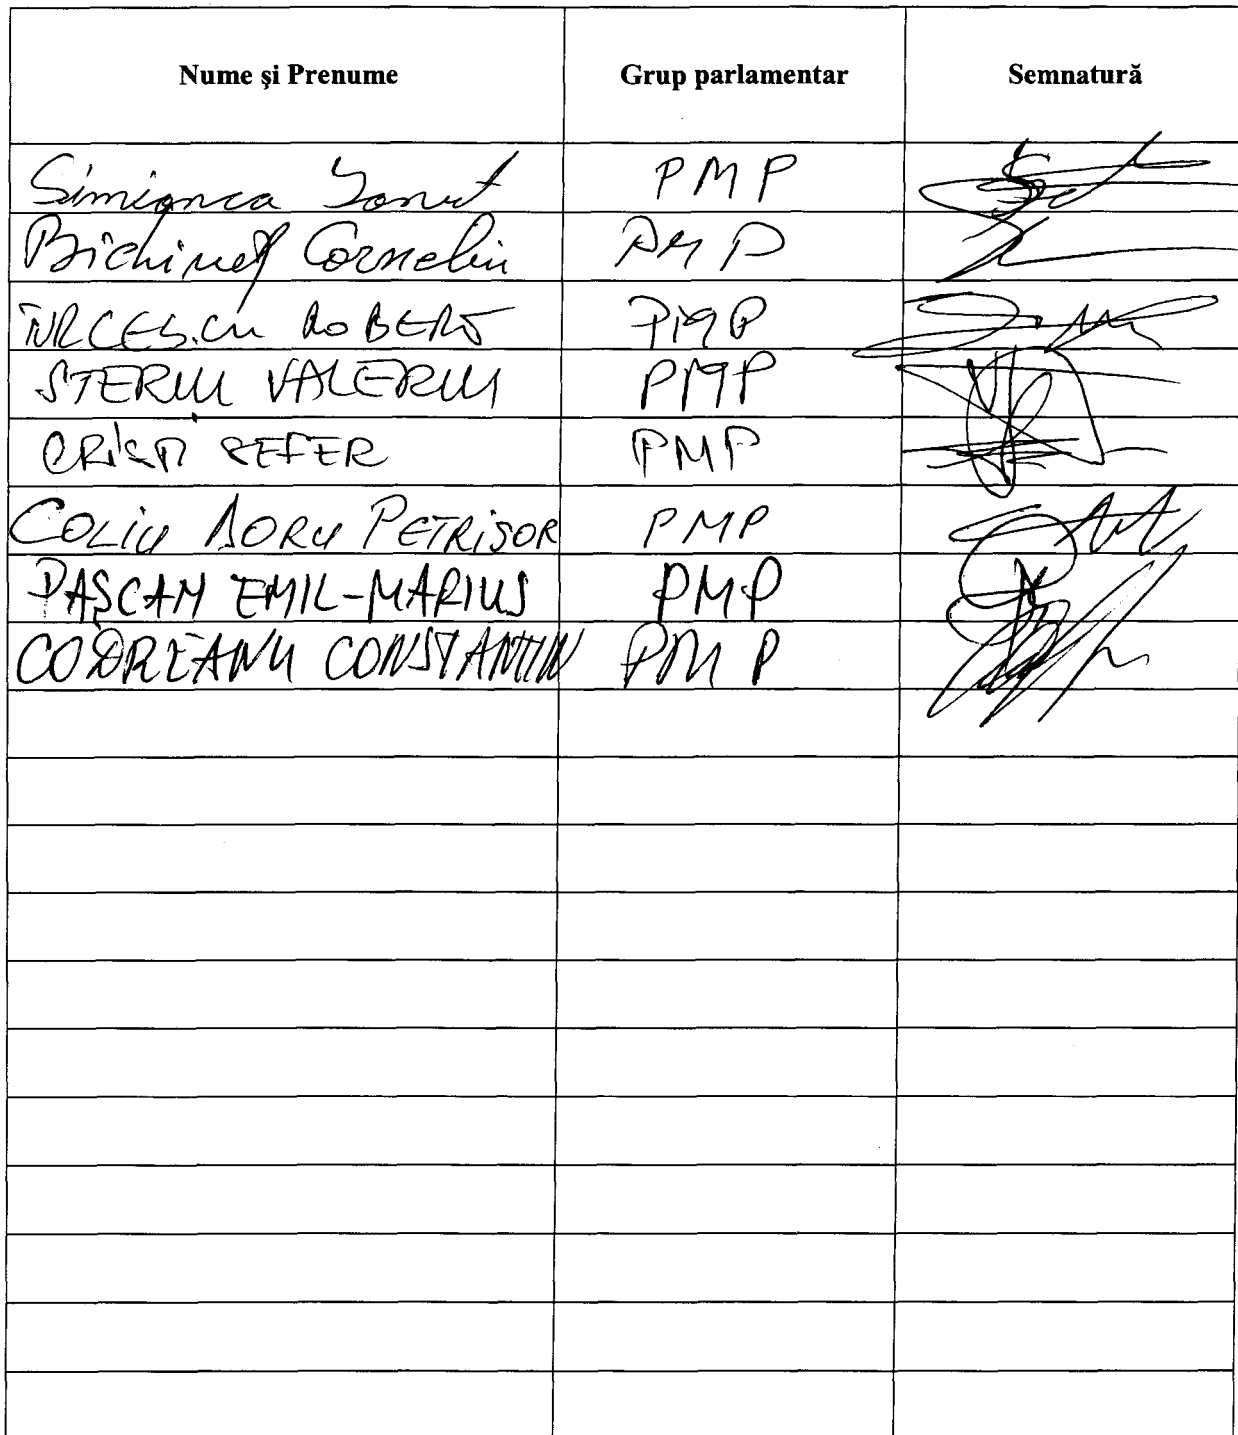 Nume şi Prenume Grup parlamentar Semnatură
Simionca Ionuț PMP
Bichineț Corneliu PMP
ROBERT PMP
STERIU VALERIU PMP
SEFER PMP
COLIU DORU PETRIȘOR PMP
PAȘCAN EMIL-MARIUS PMP
CODREANU CONSTANTIN PMP